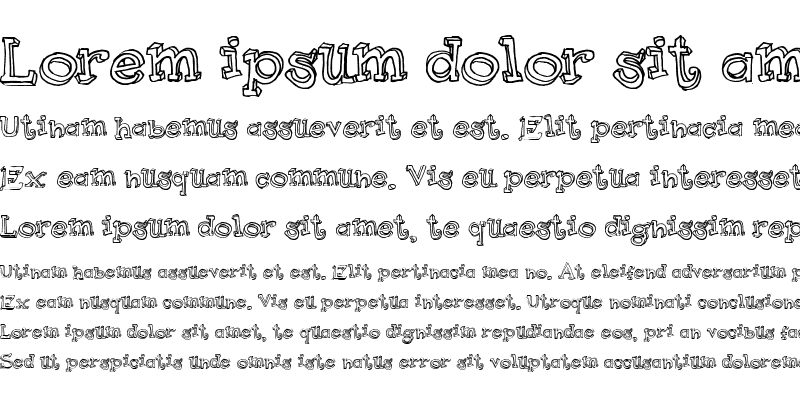 Lorem ipsum dolor sit am
Utinam habemus assueverit et est. Elit pertinacia mea
Ex eam nusquam commune. Vis eu perpetua interesset
Lorem ipsum dolor sit amet, te quaestio dignissim rep
Utinam habemus assueverit et est. Elit pertinacia mea no. At eleifend adversarium p
Ex eam nusquam commune. Vis eu perpetua interesset. Utroque nominati conclusione
Lorem ipsum dolor sit amet, te quaestio dignissim repudiandae eos, pri an vocibus fa
Sed ut perspiciatis unde omnis iste natus error sit voluptatem accusantium dolorem